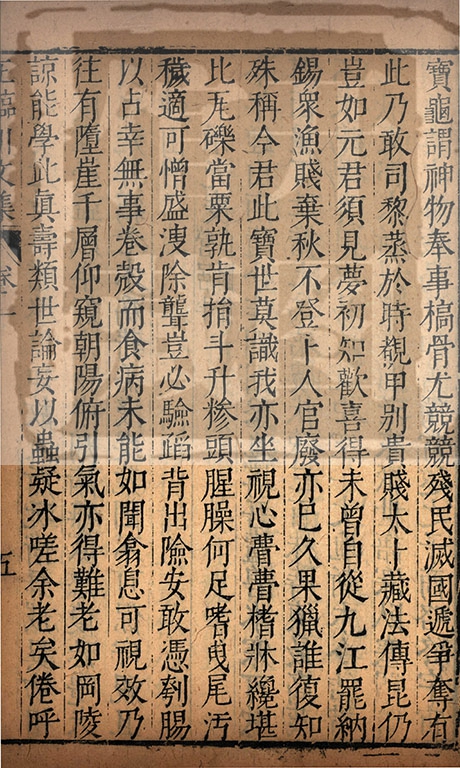 寶龜謂神物奉事槁骨尤兢兢殘民滅國遞爭奪有
此乃敢司黎蒸於時觀甲别貴賤太卜藏法傳昆仍
豈如元君須見夢初知歡喜得未曾自從九江罷納
錫衆漁賤棄秋不登卜人官廢亦已久果獵誰復知
殊稱今君此寶世莫識我亦坐視心瞢瞢楮牀纔堪
比瓦礫當粟孰肯捐斗升糝頭腥臊何足嗜曳尾汚
穢適可憎盛溲除聾豈必驗蹈背出險安敢憑刳腸
以占幸無事卷殻而食病未能如聞翕息可視效乃
往有墮崖千層仰窺朝陽俯引氣亦得難老如岡陵
諒能學此真壽類世論妄以蟲疑冰嗟余老矣倦呼
王臨川文集 卷十一 五